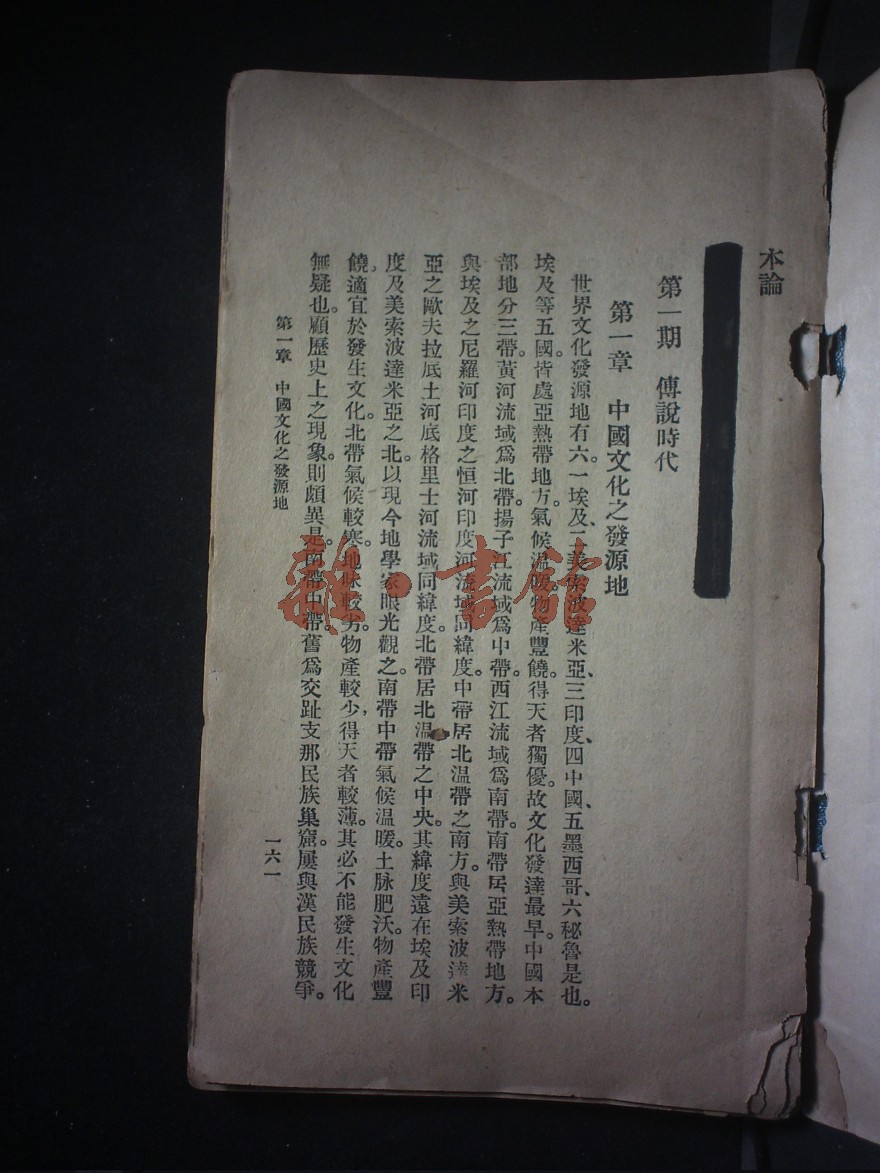 本論
第一期　傳說時代
第一章　中國文化之發源地
世界文化發源地有六。一埃及、二美索波達米亞、三印度、四中國、五墨西哥、六秘魯是也。
埃及等五國。皆處亞熱帶地方。氣候溫暖。物產豐饒。得天者獨優。故文化發達最早。中國本
部地分三帶。黃河流域爲北帶。揚子江流域爲中帶。西江流域爲南帶。南帶居亞熱帶地方。
與埃及之尼羅河印度之恒河印度河流域同緯度。中帶居北溫帶之南方。與美索波達米
亞之歐夫拉底土河底格里士河流域同緯度。北帶居北溫帶之中央。其緯度遠在埃及印
度及美索波達米亞之北。以現今地學家眼光觀之。南帶中帶氣候溫暖。土脉肥沃。物產豐
饒。適宜於發生文化。北帶氣候較寒。地味較劣。物產較少。得天者較薄。其必不能發生文化
無疑也。顧歷史上之現象。則頗異是。南帶中帶。舊爲交趾支那民族巢窟。屢與漢民族競爭。
第一章　中國文化之發源地
一六一
雜·書館